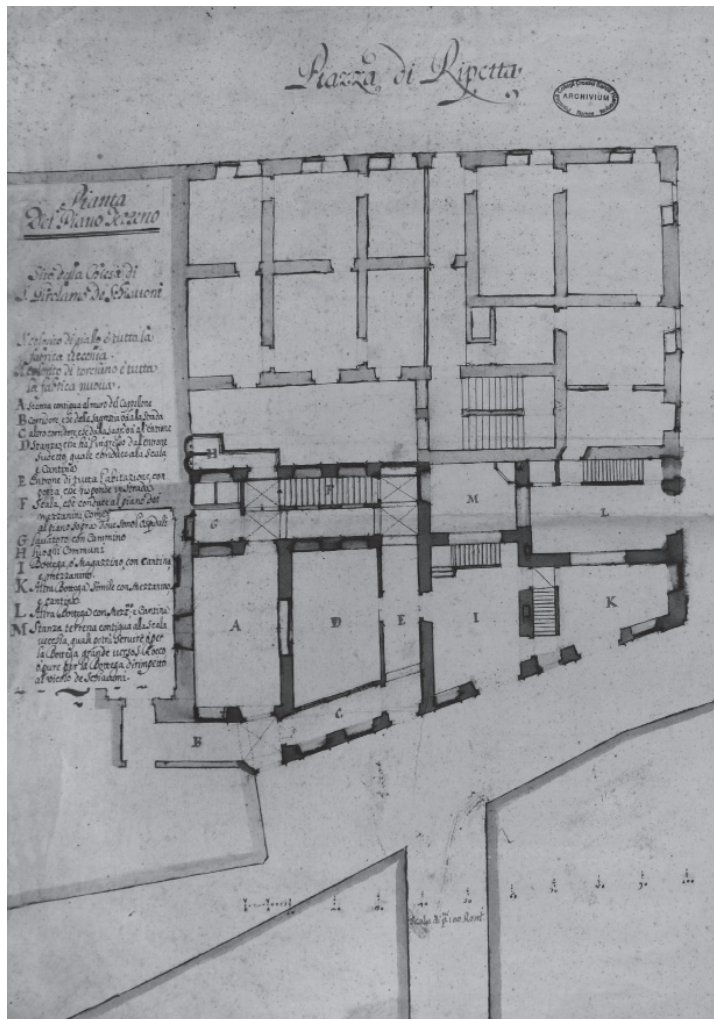 Piazza di Ripetta
ARCHIVIUM
Pianta
Del Piano Terreno
Sito della Chiesa di
S. Girolamo de Schiavoni
Il colorito di giallo è tutta la
fabrica vecchia.
Il colorito di torchino è tutta
la fabrica nuova.
A Stanza contigua al muro del Cappellone
B Corridore, che dalla Sagrestia và alla strada
C altro corridore, che dalla
D Stanza, che hà l'ingresso dal Entrone
sudetto, quale conduce alla Scala
e Cantine
E Entrone di tutta l'abitazione, con
porta, che risponde in strada
F Scala, che conduce al piano dei
mezzanini, come
al piano sopra dove sono li
G lavatoro con Cammino
H luoghi Communi
I Bottega, ò Magazzino, con Cantina
e mezzanino.
K Altra Bottega simile con Mezzanino
e cantina
L Altra Bottega con Mezz.º e Cantina
M Stanza terrena contigua alla scala
vecchia, quale potrà servire ò per
la Bottega grande verso S. Rocco
ò pure per la Bottega dirimpetto
al vicolo de Schiavoni.
H
F
G
M
L
A
D
E
I
K
C
B
Scala di